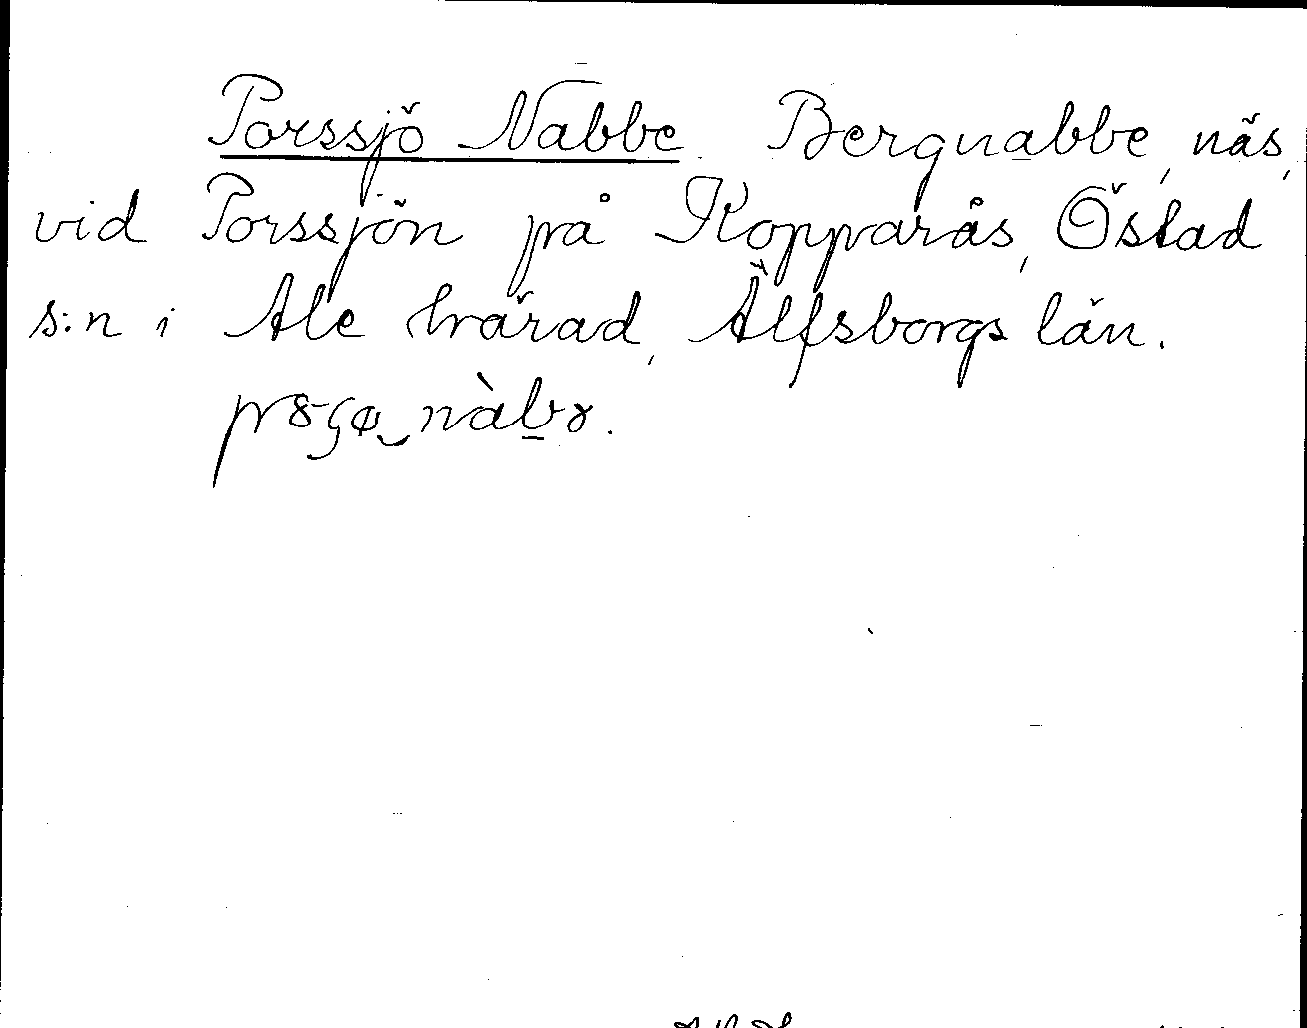 Porssjö Nabbe. Bergnabbe, näs,
vid Porssjön på Kopparås, Östad
s:n i Ale härad, Älfsborgs län.